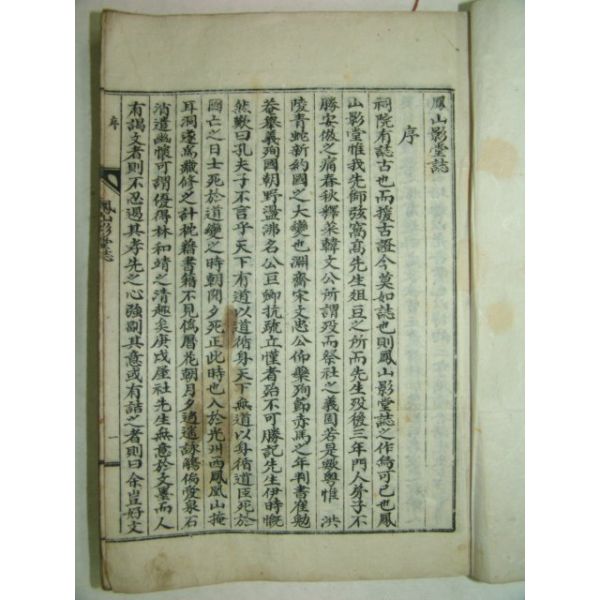 鳳山影堂誌
序
祠院有誌古也而援古證今莫如誌也則鳳山影堂誌之作烏可已也鳳
山影堂惟我先師弦窩高先生俎豆之所而先生歿後三年門人弟子不
勝安倣之痛春秋釋菜韓文公所謂歿而祭社之義固若是噫粤惟 洪
陵青蛇新約國之大變也淵齋宋文忠公仰藥殉節赤馬之年判書崔勉
菴擧義殉國朝野盪沸名公巨卿抗疏立慬者殆不可勝記先生伊時慨
然歎曰孔夫子不言乎天下有道以道循身天下無道以身循道臣死於
國亡之日士死於道變之時朝聞夕死正此時也入於光州西鳳凰山掩
耳洞遂爲藏修之計枕籍書籍不見僞曆花朝月夕逍遙詠觴偏愛泉石
消遣幽懷可謂優得林和靖之清趣矣庚戌屋社先生無意於文墨而人
有謁文者則不忍遏其孝先之心強副其意或有詰之者則曰余豈好文
序
鳳山影堂誌
一